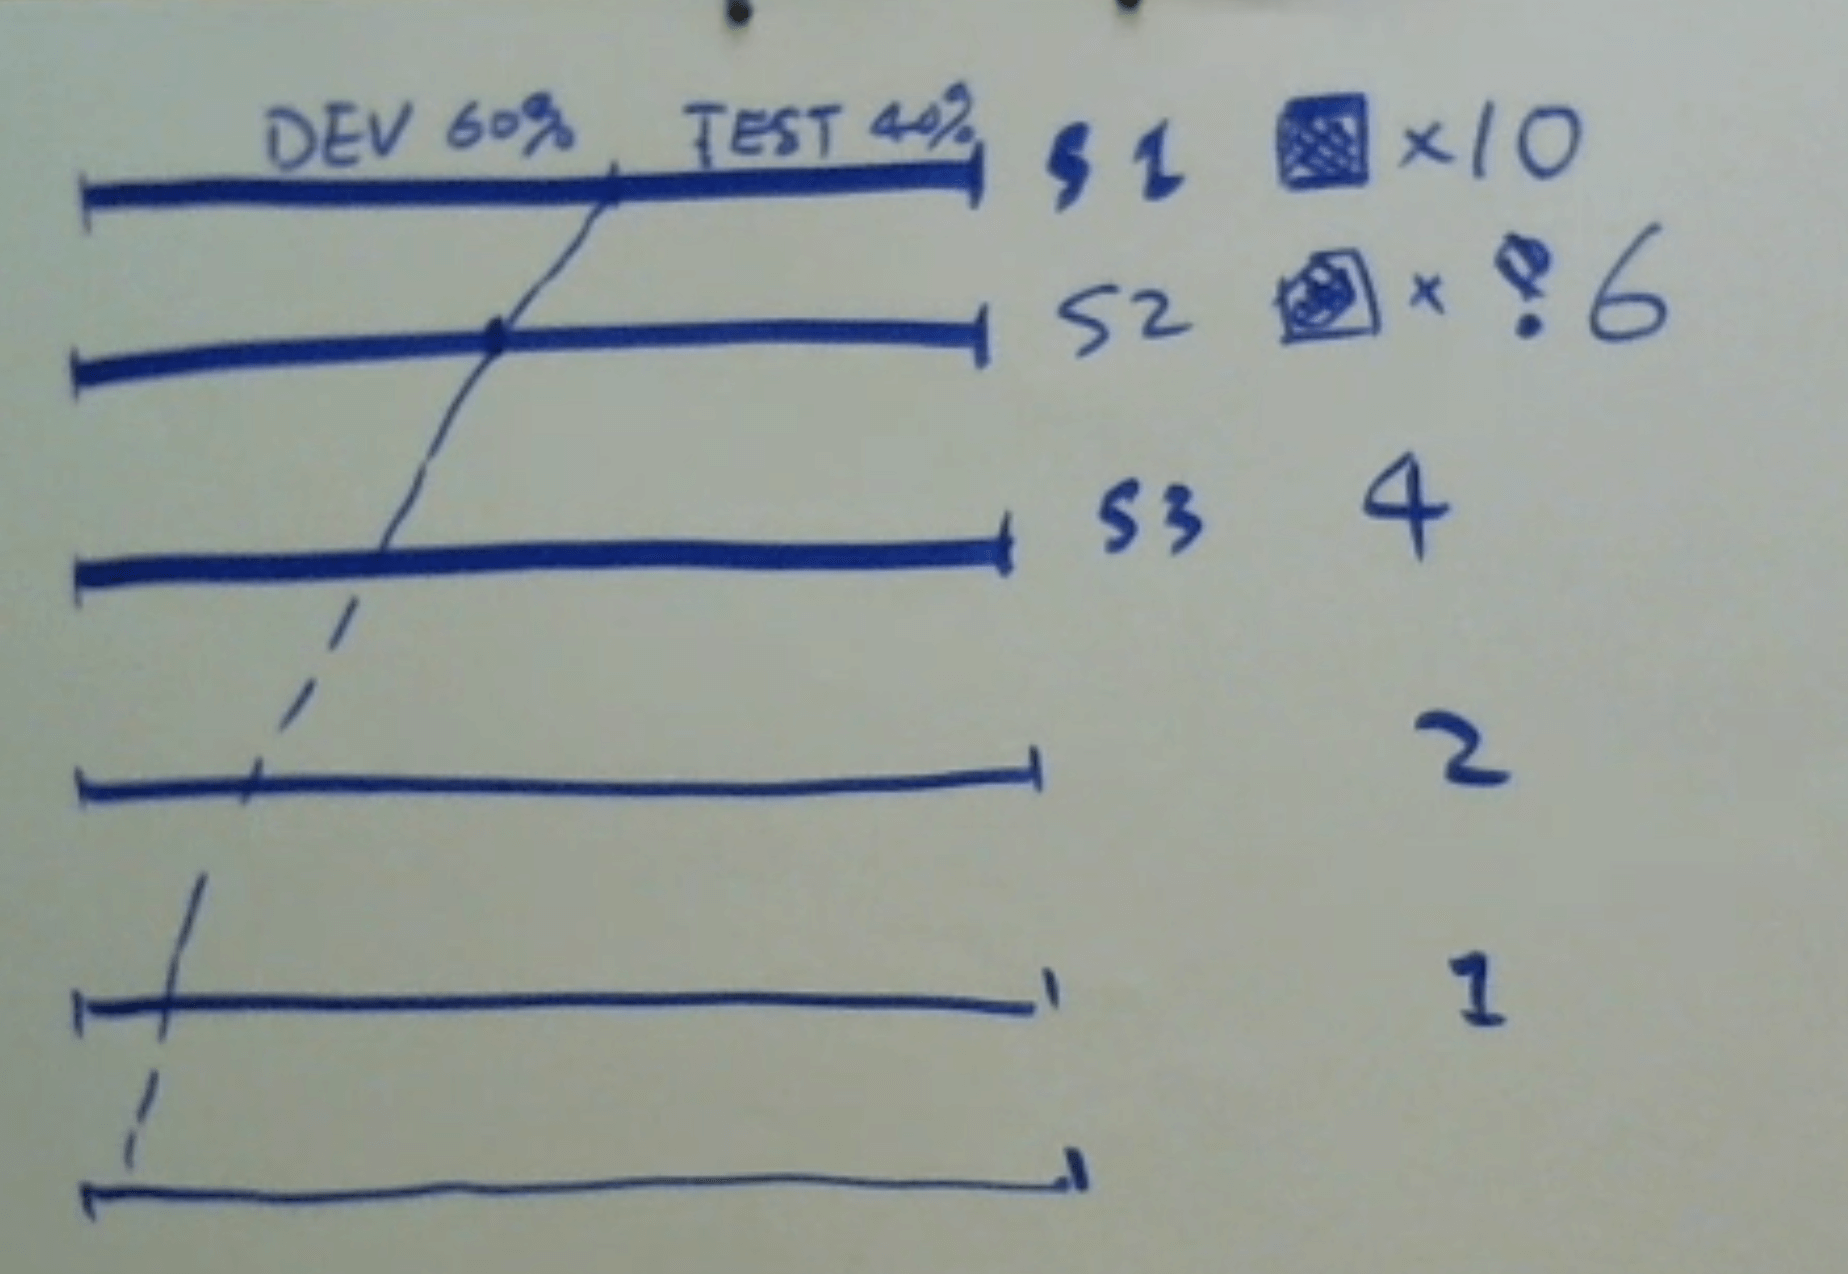 DEV 60% TEST 40% S1 ×10
S2 × ? 6
S3 4
2
1